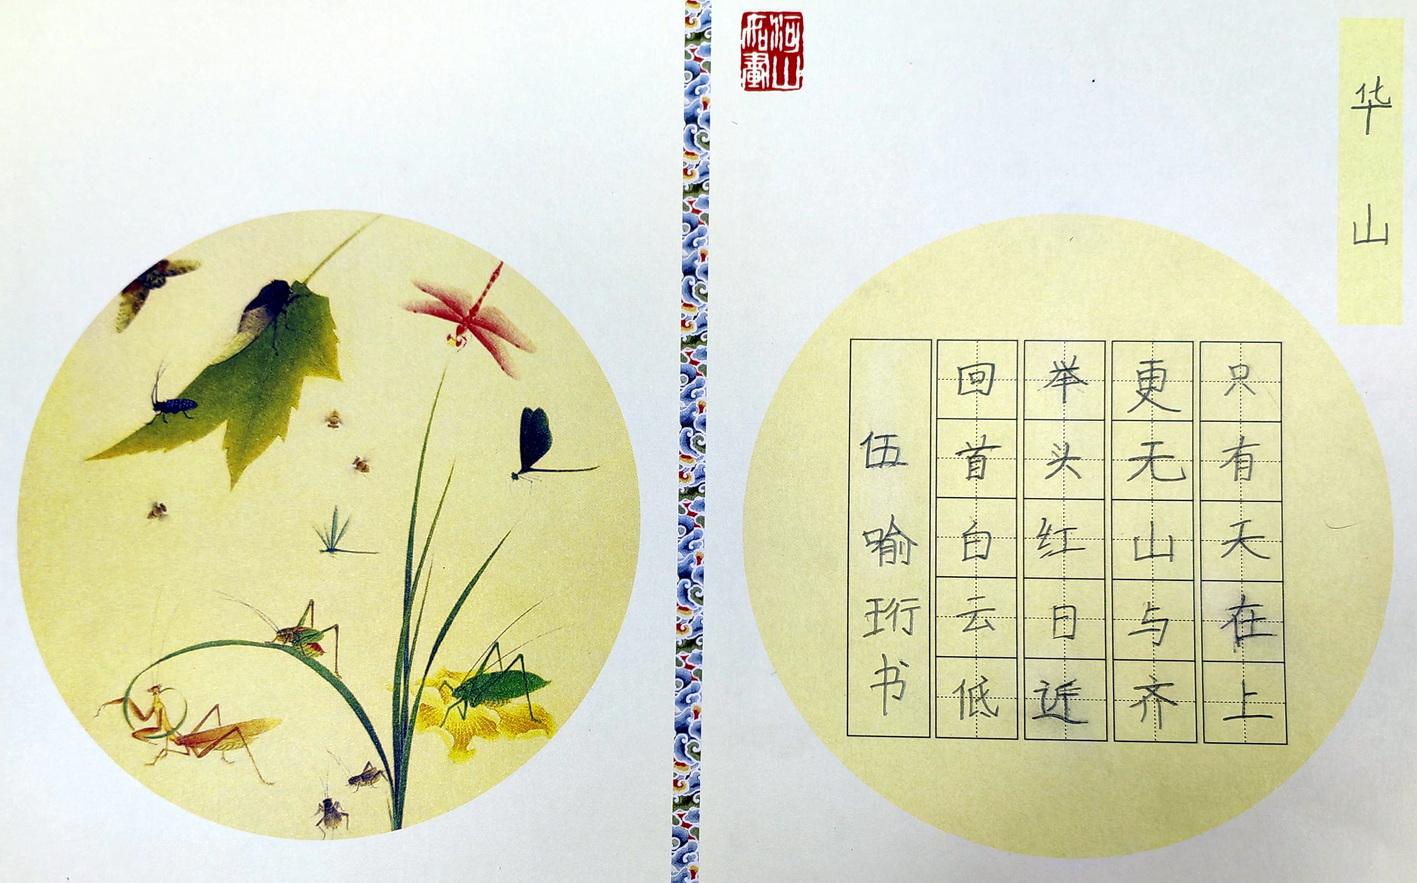 华山
只有天在上
更无山与齐
举头红日近
回首白云低
伍喻珩书